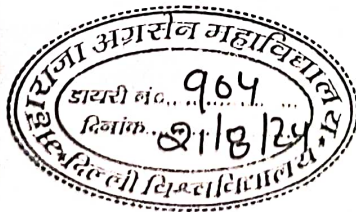 महाराजा अग्रसेन महाविद्यालय
डायरी नं०.. 904
दिनांक.. 21/8/24
दिल्ली विश्वविद्यालय